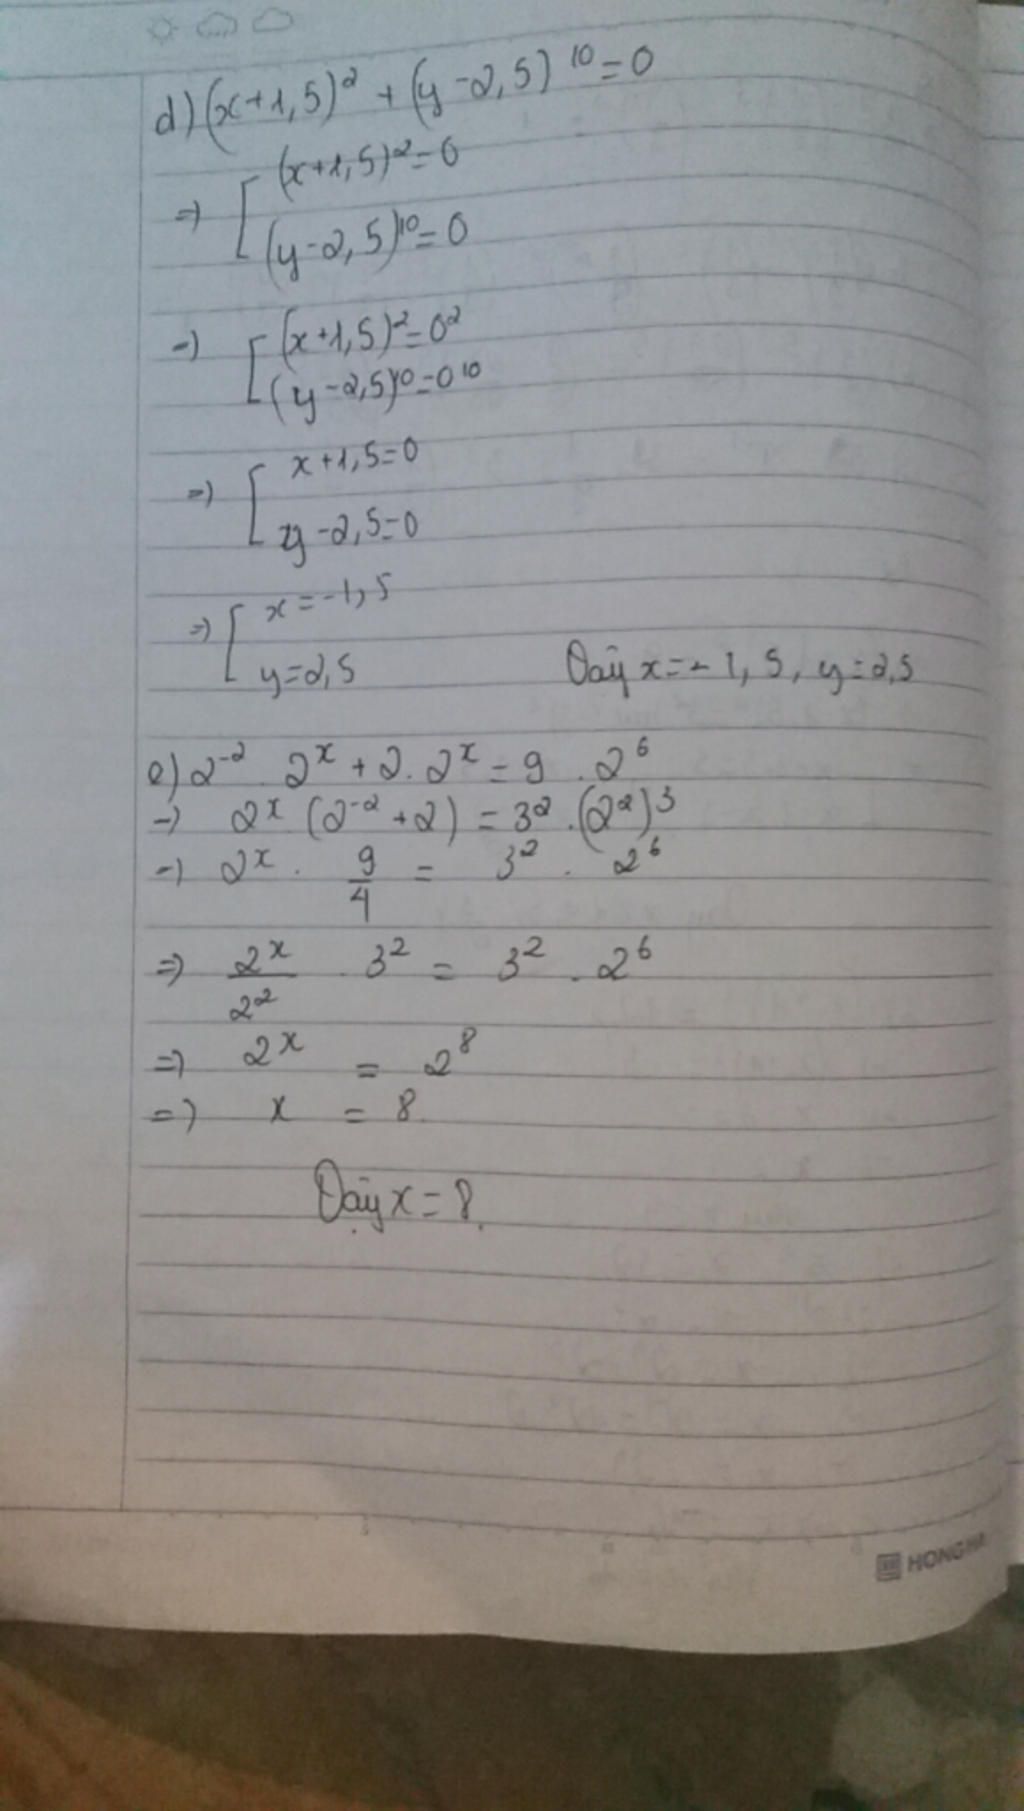 d) (x+1,5)² + (y-2,5)¹⁰ = 0
=> [ (x+1,5)² = 0
(y-2,5)¹⁰ = 0
=> [ (x+1,5)² = 0²
(y-2,5)¹⁰ = 0¹⁰
=> [ x+1,5 = 0
y-2,5 = 0
=> [ x = -1,5
y = 2,5 Vậy x = -1,5, y = 2,5
e) 2⁻² . 2ˣ + 2 . 2ˣ = 9 . 2⁶
=> 2ˣ (2⁻² + 2) = 3² . (2²)³
=> 2ˣ . 9/4 = 3² . 2⁶
=> 2ˣ/2² . 3² = 3² . 2⁶
=> 2ˣ = 2⁸
=> x = 8
Vậy x = 8.
HONG HA